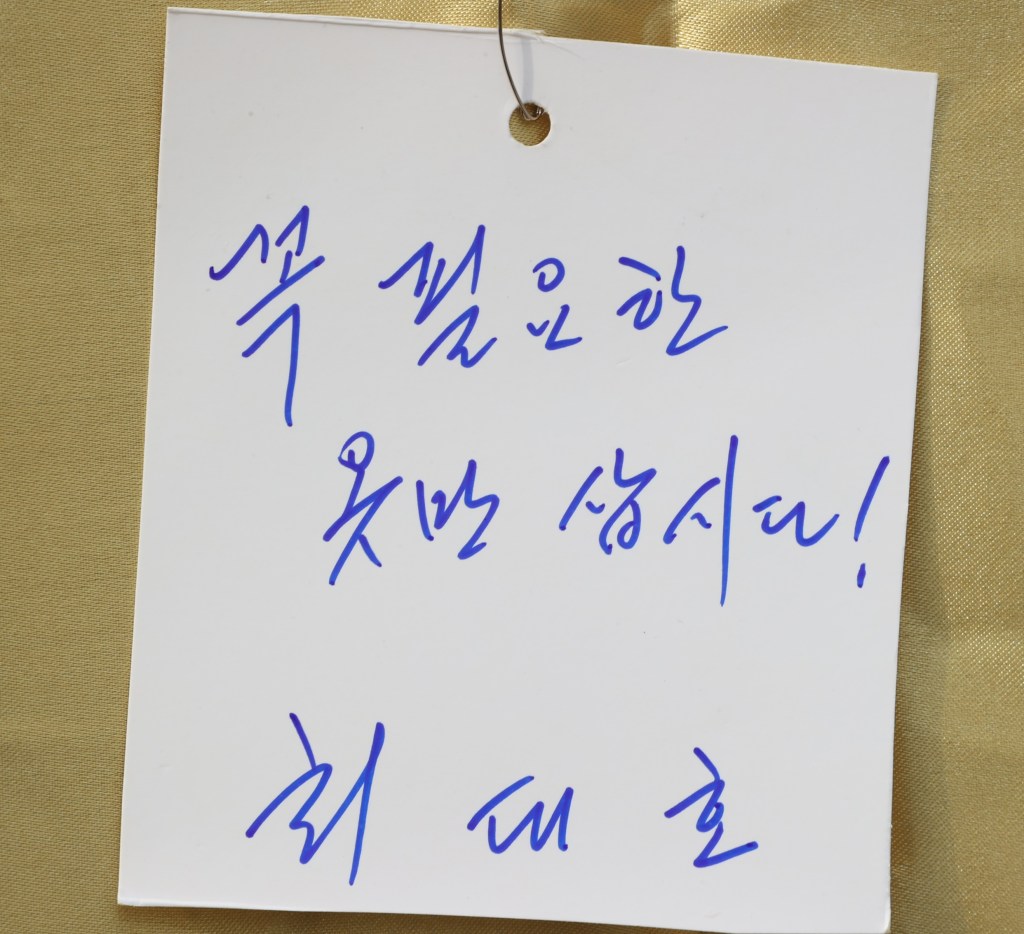 꼭 필요한
옷만 삽시다!
최대호